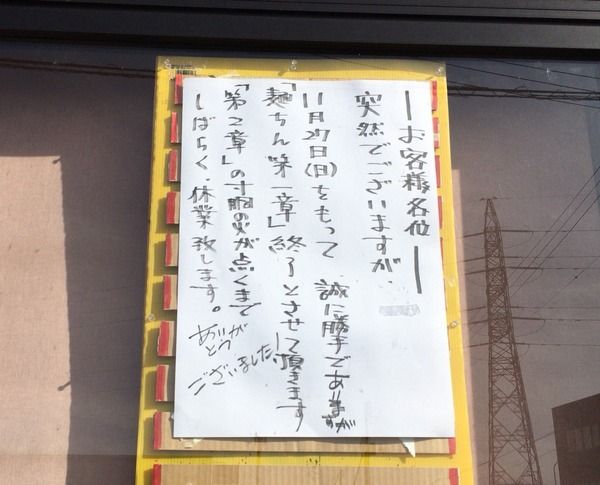 ーお客様各位ー
突然でございますが、
誠に勝手でありますが
11月27日(日)をもって
「麺ちん"第一章」終了とさせて頂きます
「第2章」の寸胴の火が点くまで
しばらく、休業致します。
ありがとう
ございました!